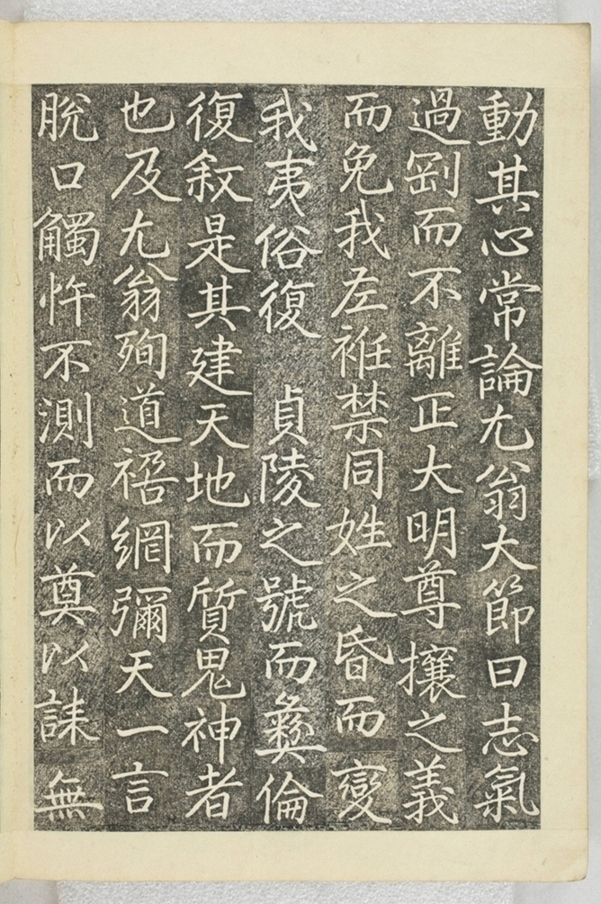 動其心常論尢翁大節曰志氣
過剛而不離正大明尊攘之義
而免我左袵禁同姓之昏而變
我夷俗復　貞陵之號而彝倫
復敘是其建天地而質鬼神者
也及尢翁殉道禍網彌天一言
脫口觸忤不測而以奠以誄無